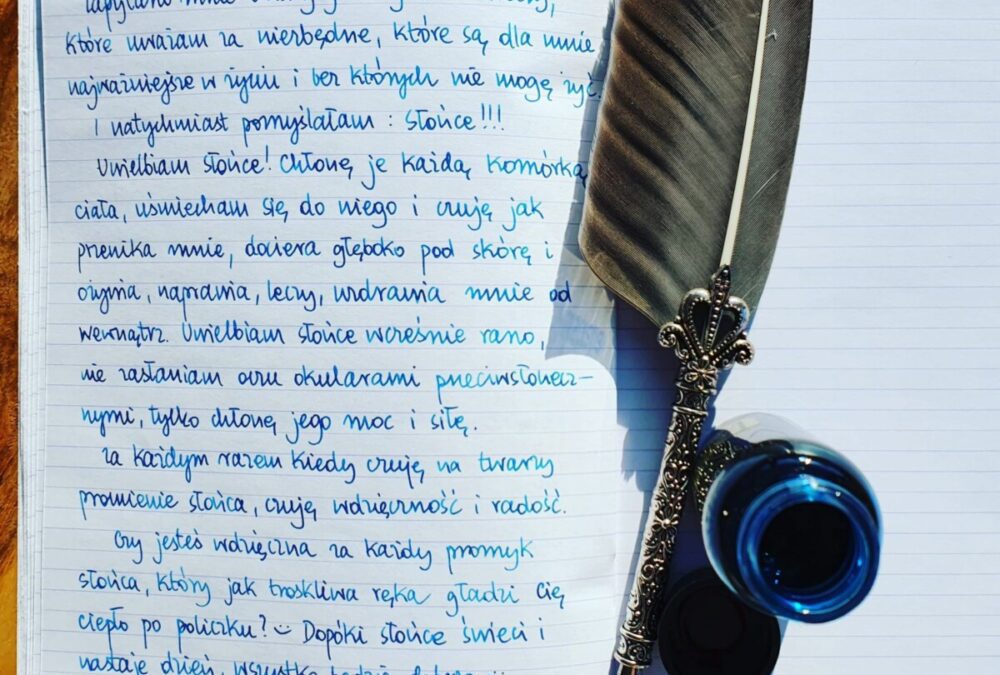 zapytano mnie
które uważam za niezbędne, które są dla mnie
najważniejsze w życiu i bez których nie mogę żyć.
I natychmiast pomyślałam : Słońce!!!
Uwielbiam słońce! Chłonę je każdą komórką
ciała, uśmiecham się do niego i czuję jak
przenika mnie, dociera głęboko pod skórę i
ożywia, naprawia, leczy, uzdrawia mnie od
wewnątrz. Uwielbiam słońce wcześnie rano,
nie zasłaniam oczu okularami przeciwsłonecz-
nymi, tylko chłonę jego moc i siłę.
Za każdym razem kiedy czuję na twarzy
promienie słońca, czuję wdzięczność i radość.
Czy jesteś wdzięczna za każdy promyk
słońca, który jak troskliwa ręka gładzi Cię
ciepło po policzku? Dopóki słońce świeci i
nastaje dzień, wszystko będzie